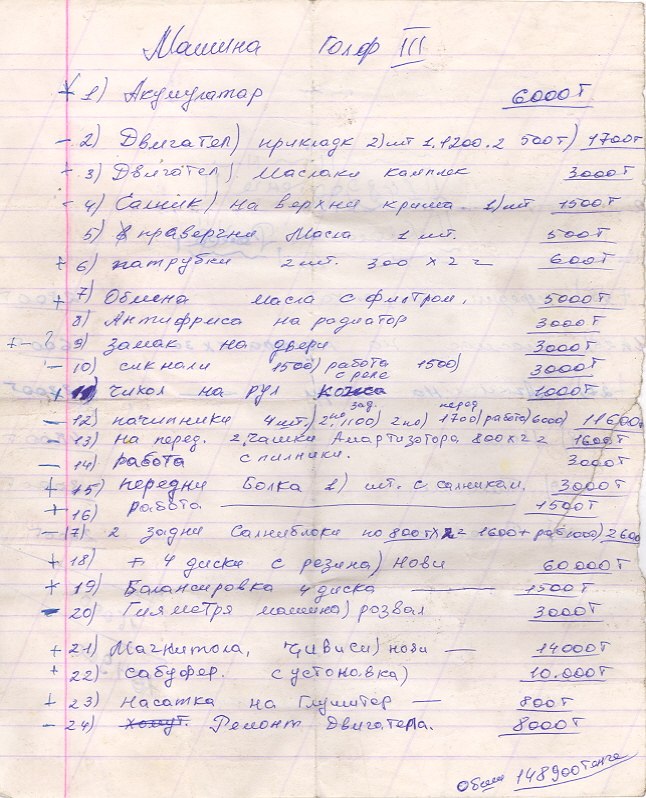 Машина Голф III
+ 1) Акумулатар 6000т
- 2) Двигател) прикладк 2)шт 1,1200.2 500т) 1700т
- 3) Двигател) Маслаки камплек 3000т
- 4) Салник) на верхни криша. 1)шт 1500т
5) правергни Масла 1 шт. 500т
+ 6) патрубки 2 шт. 300 х 2 = 600т
+ 7) Обмена масла с филтром, 5000т
8) Антифриса на радиатор 3000т
+-? 9) замак на двери 3000т
- 10) сикнали 1500) работа 1500) 3000т
с реле
+ 11) чихол на рул кожса 1000т
зад. перед
- 12) начипники 4 шт.) 2) по 1100) 2 по) 1700) работа) 6000) 11600т
- 13) На перед. 2, Чашки Амартизотора 800х2= 1600т
- 14) работа с пилники. 3000т
+ 15) передни Болка 1) шт. с салникам 3000т
+ 16) работа 1500т
- 17) 2 задни Салниблоки по 800тх2= 1600+ работа) 2600
+ 18) 4 диски с резина) Нови 60.000т
+ 19) Балансировка 4 диска 1500т
- 20) Гияметря машина) розвал 3000т
+ 21) Магнитола, нови — 14000т
+ 22) сабуфер. с устоновка) 10.000т
+ 23) Насатка на Глушитер — 800т
- 24) хомут. Ремонт Двигатера. 8000т
Обши 148900 тенге